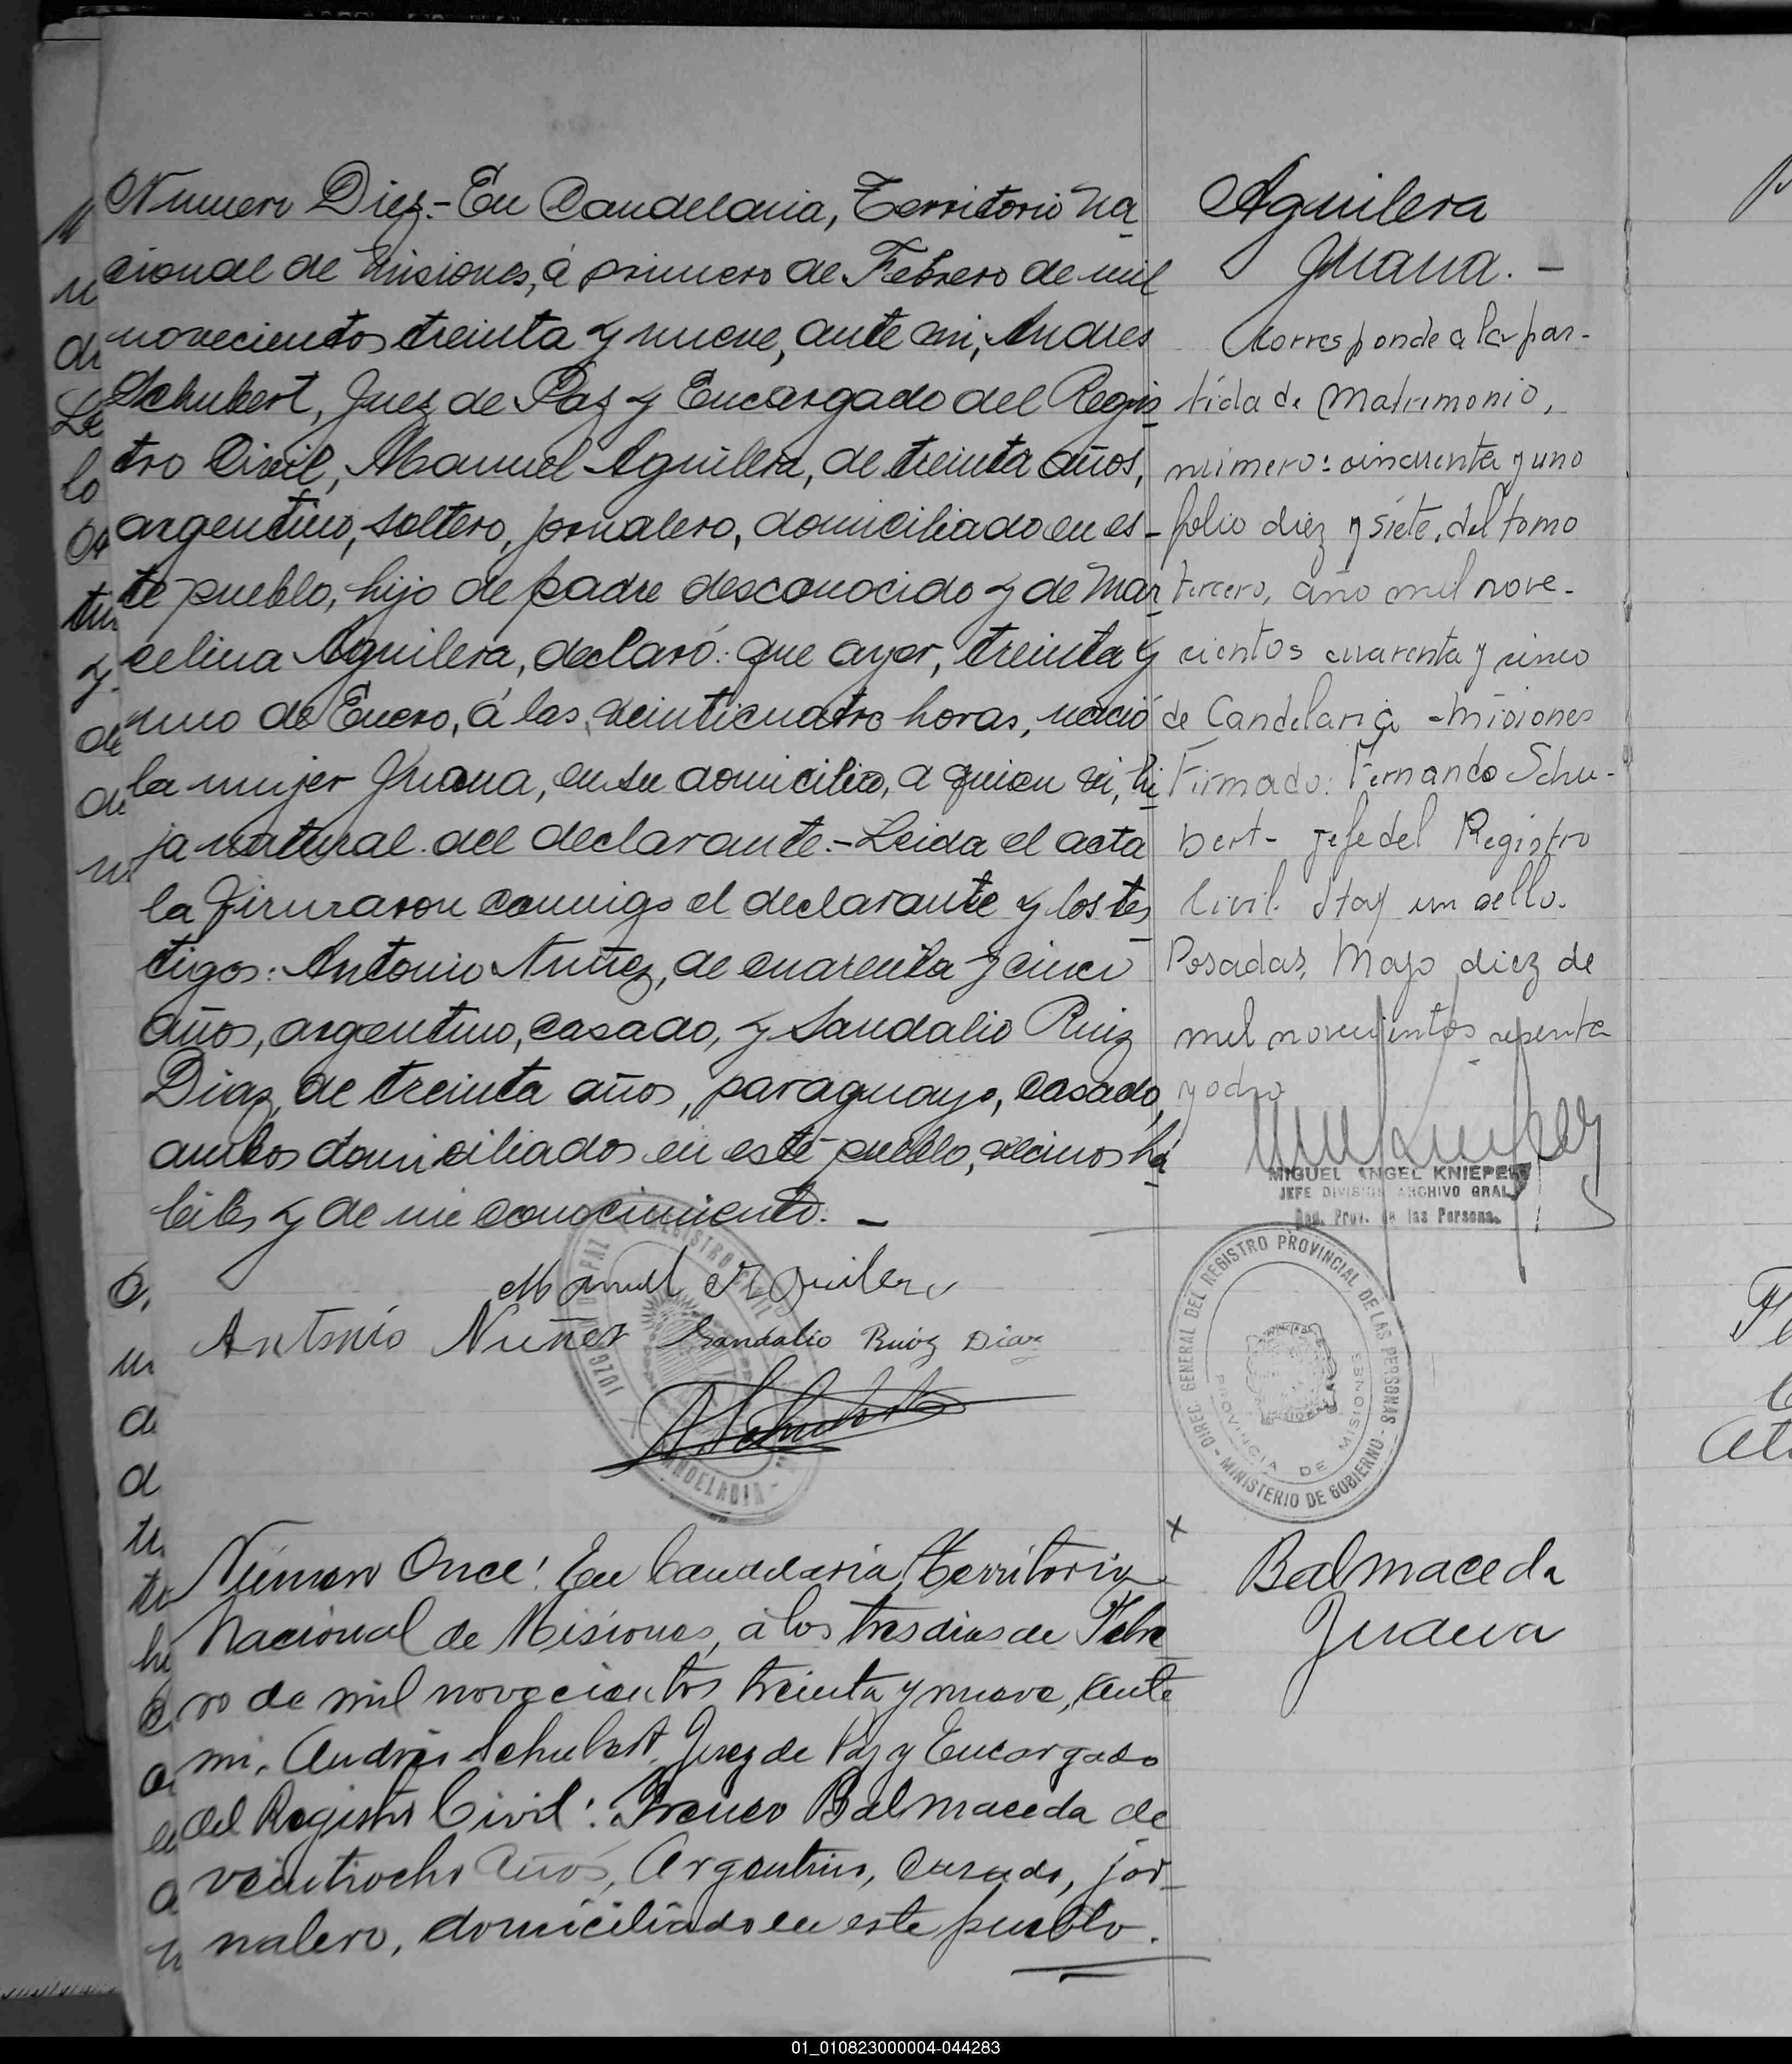 Numero Diez.- En Candelaria, Territorio Na
cional de Misiones, á primero de Febrero de mil
novecientos treinta y nueve, ante mi, Andres
Schubert, Juez de Paz y Encargado del Regis
tro Civil, Manuel Aguilera, de treinta años,
argentino, soltero, jornalero, domiciliado en es-
te pueblo, hijo de padre desconocido y de Mar
celina Aguilera, declaró: que ayer, treinta y
uno de Enero, á las veinticuatro horas, nació
la mujer Juana, en su domicilio, a quien vi, hi
ja natural del declarante.- Leida el acta
la firmaron conmigo el declarante y los tes
tigos: Antonio Nuñez, de cuarenta y cinco
años, argentino, casado, y Sandalio Ruiz
Diaz, de treinta años, paraguayo, casado,
ambos domiciliados en este pueblo, vecinos há
biles y de mi conocimiento. -
Manuel Aguilera
Antonio Nuñez Sandalio Ruiz Diaz
A Schubert
JUZGADO DE PAZ REGISTRO CIVIL
CANDELARIA
Aguilera
Juana. -
Corresponde a la par-
tida de Matrimonio,
número: cincuenta y uno
folio diez y siete, del tomo
tercero, año mil nove-
cientos cuarenta y cinco
de Candelaria - Misiones
Firmado: Fernando Schu-
bert - Jefe del Registro
Civil. Hay un sello.
Posadas, Mayo diez de
mil novecientos setenta
y ocho
MIGUEL ANGEL KNIEPER
JEFE DIVISION ARCHIVO GRAL.
Reg. Prov. de las Personas
DIREC. GENERAL DEL REGISTRO PROVINCIAL DE LAS PERSONAS - MINISTERIO DE GOBIERNO -
PROVINCIA DE MISIONES
Número Once: En Candelaria, Territorio
Nacional de Misiones, á los tres dias de Febre
ro de mil novecientos treinta y nueve, ante
mi, Andrés Schubert, Juez de Paz y Encargado
del Registro Civil: Ireneo Balmaceda de
veintiocho años, Argentino, Casado, jor-
nalero, domiciliado en este pueblo.
x
Balmaceda
Juana
01_010823000004-044283